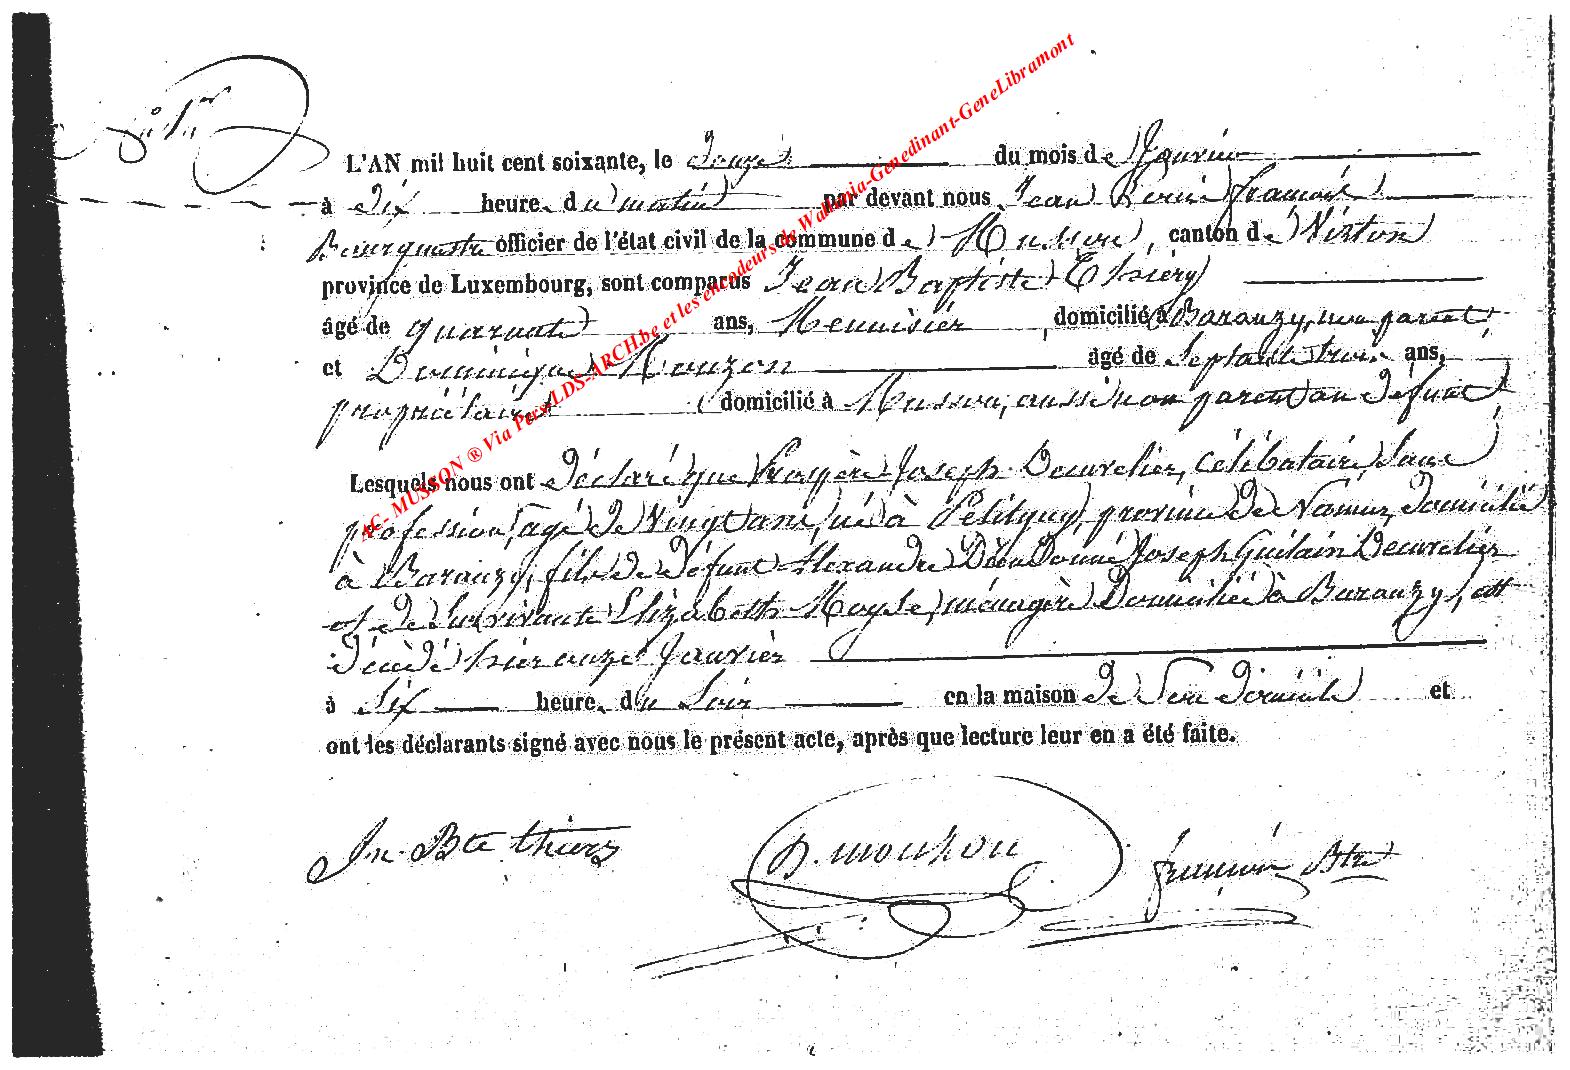 L'AN mil huit cent soixante, le douze du mois de Janvier
à dix heure du matin par devant nous Jean
Bourgmestre officier de l'état civil de la commune de Musson, canton de Virton
province de Luxembourg, sont comparus Jean Baptiste Thiéry
âgé de quarante ans, Menuisier, domicilié à Baranzy, non parent,
et Dominique Mouzon âgé de septante trois ans,
propriétaire domicilié à Musson, aussi non parent au défunt,
Lesquels nous ont déclaré que Prospère Joseph Deuvelier, célibataire, sans
profession, agé de vingt ans, né à Petitguy, province de Namur, domicilié
à Baranzy, fils de défunt Alexandre Dieu Donné Joseph Guilain Deuvelier
et de survivante Elizabeth Moyse, ménagère domiciliée à Baranzy, est
décédé hier onze Janvier
à six heure du soir en la maison de son domicile et
ont les déclarants signé avec nous le présent acte, après que lecture leur en a été faite.
Jn Bte thiery
D. mouzon
Btre
AC- MUSSON ® Via Pers/LDS-ARCH.be et les encodeurs de Wallonia-Genedinant-GeneLibramont